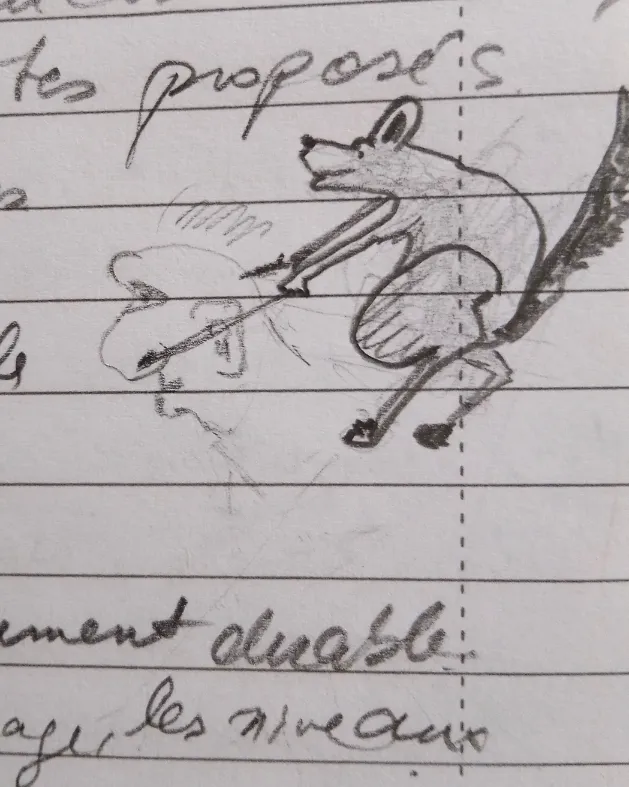 tes proposés
ement durable
age, les niveaux